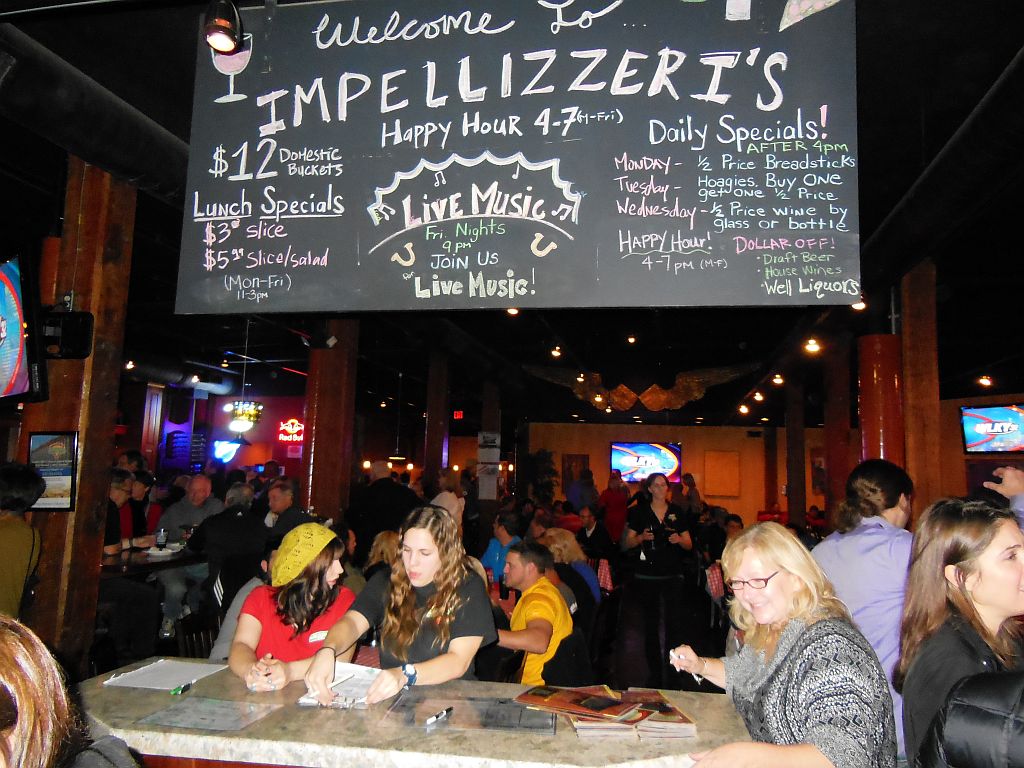 Welcome To ...
IMPELLIZZERI'S
Happy Hour 4-7 (M-Fri)
$12 Domestic
Buckets
Lunch Specials
$3 slice
$5 Slice/salad
(Mon-Fri)
11-3pm
Live Music
Fri. Nights
9 pm
Join Us
for
Live Music!
Daily Specials!
AFTER 4pm
Monday - ½ Price Breadsticks
Tuesday - Hoagies. Buy One
get one ½ Price
Wednesday - ½ Price wine by
glass or bottle
Happy Hour!
4-7pm (M-F)
Dollar Off!
· Draft Beer
· House Wines
· Well Liquors
Red Bull
WLKY